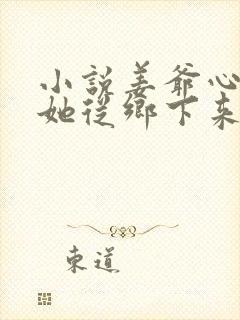 小説姜爺心
她從鄉下來
東道